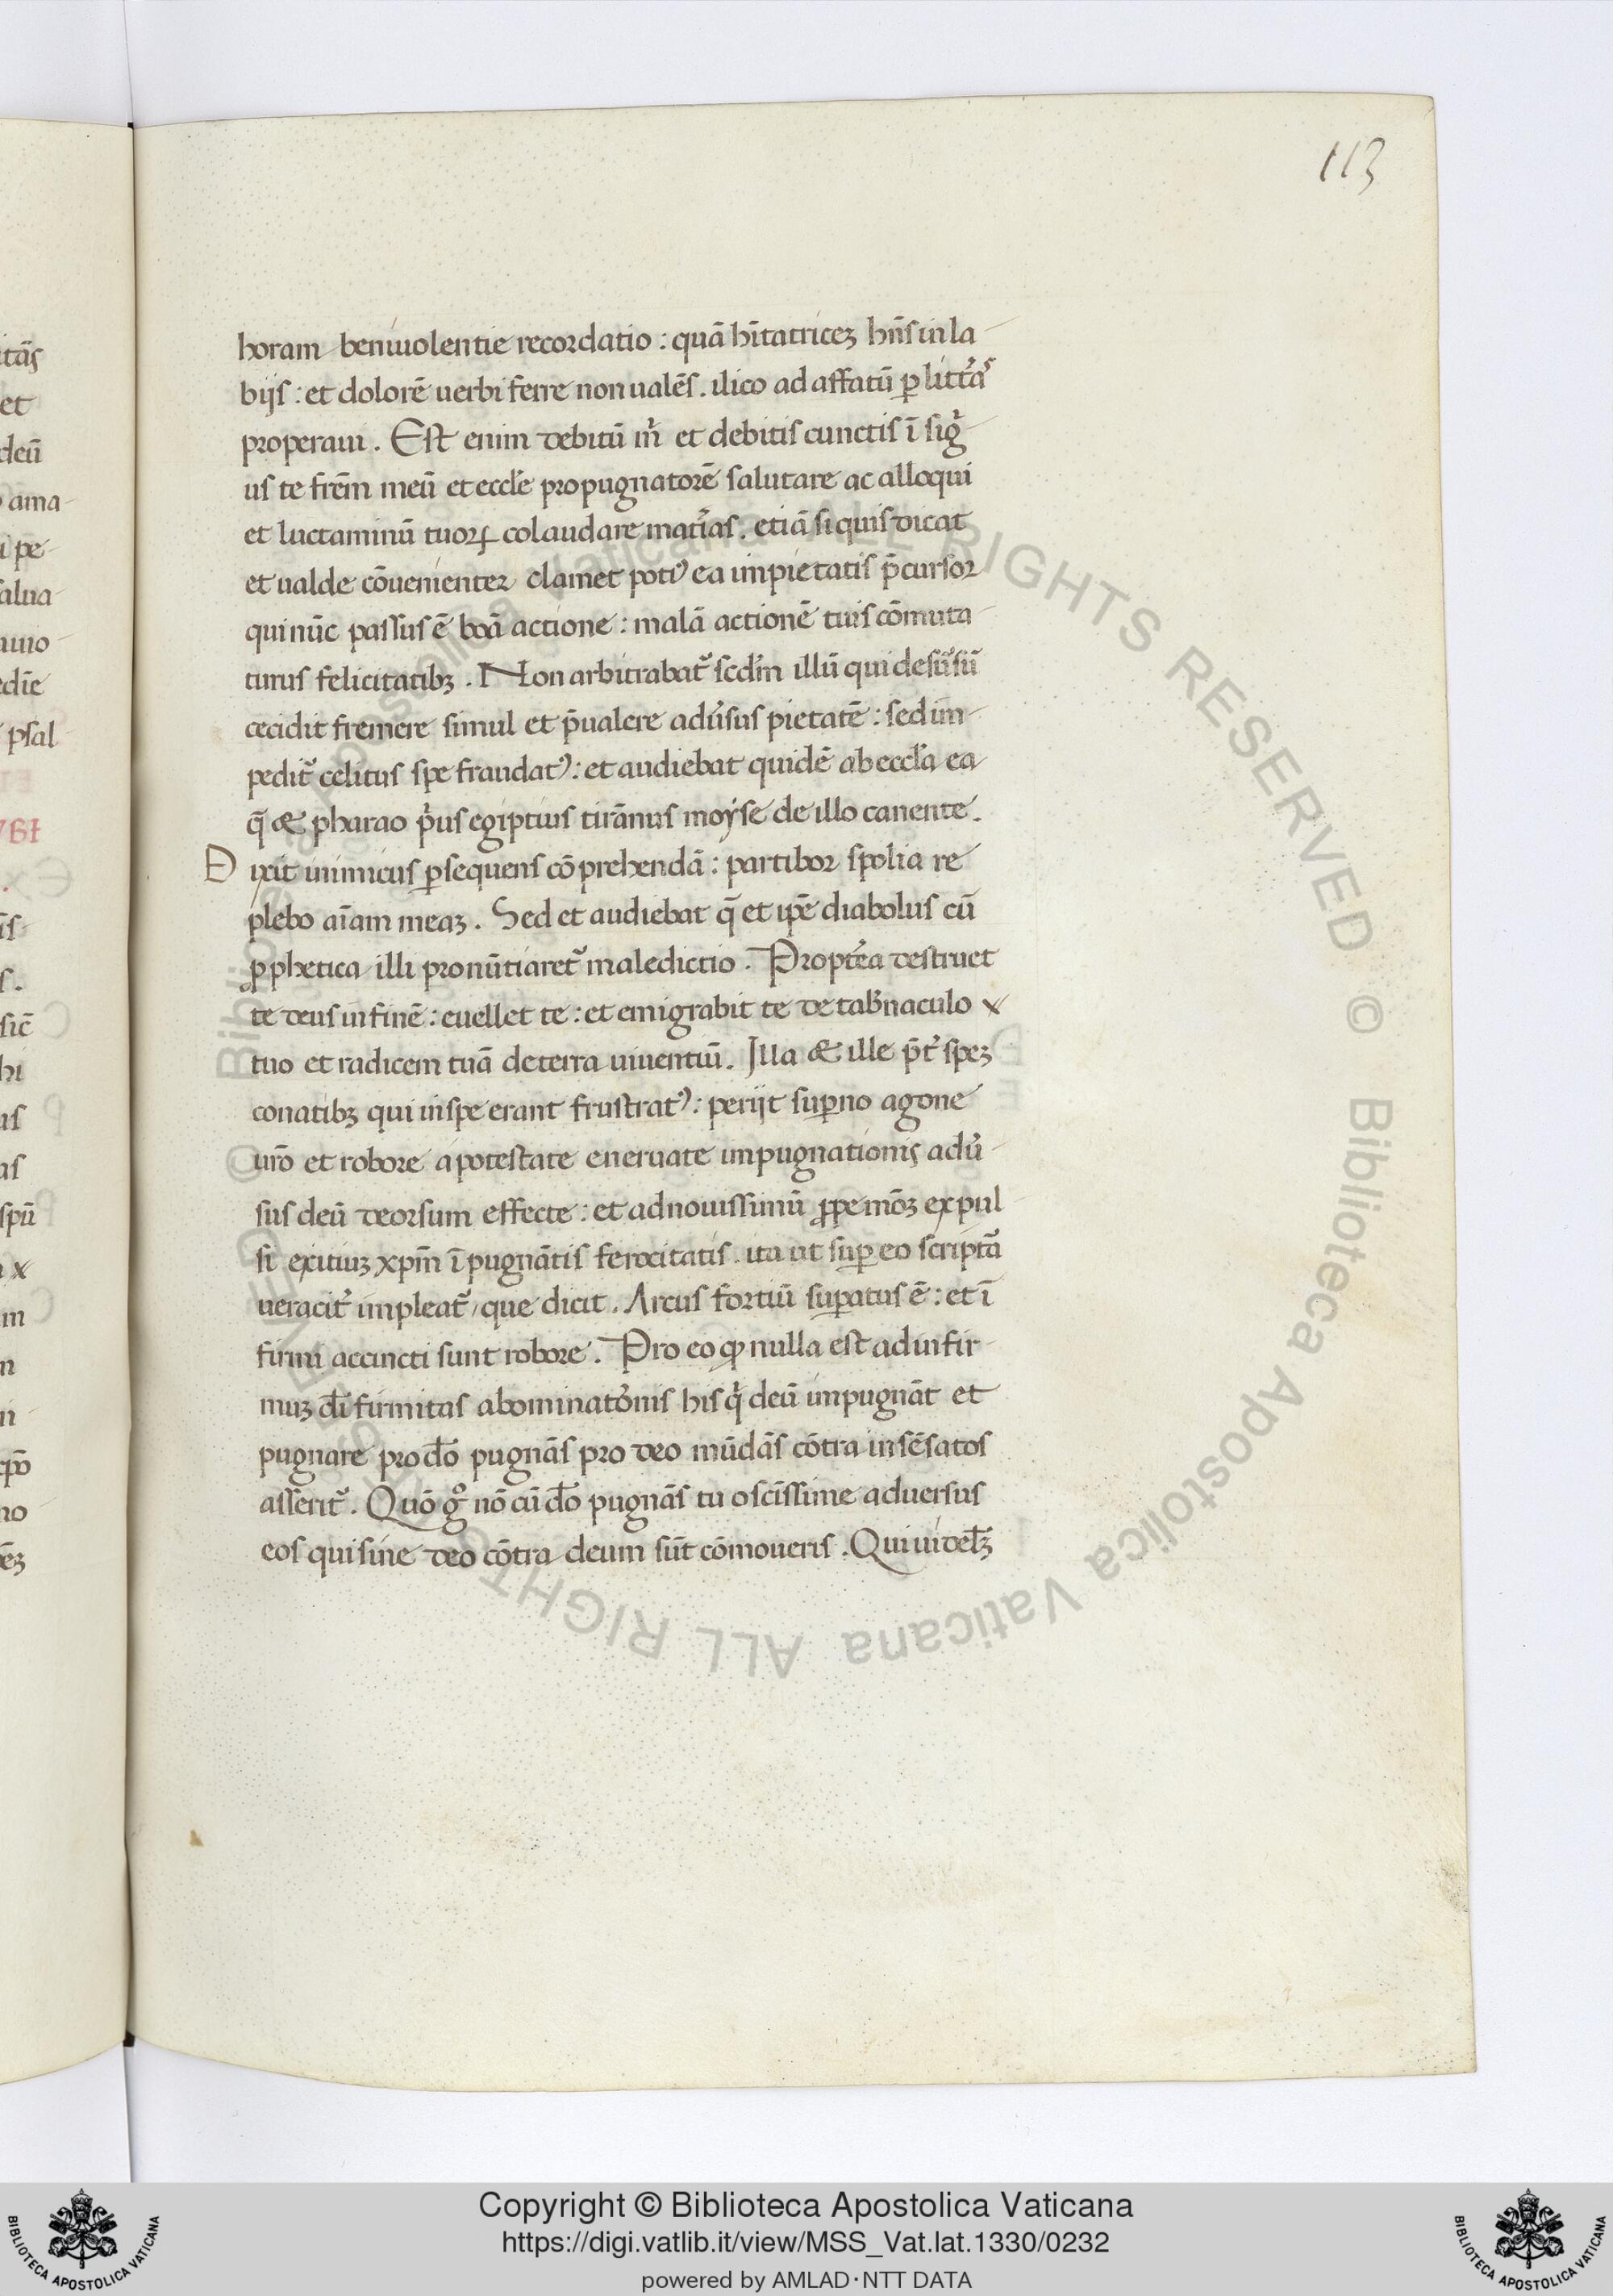 113
horam beniuolentie recordatio : quā hītatricez hñs in la-
bijs : et dolorē uerbi ferre non ualēs . ilico ad affatū ꝑ litt̃as
properaui . Est enim debitū m̃ et debitis cunctis ī sig̃-
us te frēm meū et eccl̃e propugnatorē salutare ac alloqui
et luctaminū tuoꝝ colaudare mat̃ias . etiā si quis dicat
et ualde cōuenienter clamet potiꝰ ea impietatis p̄cursor
qui nūc passus ē boā actione : malā actionē tuis cōmuta-
turus felicitatibꝫ . Non arbitrabat̃ scdm̃ illū qui desũsū
cecidit fremere simul et p̄ualere adũsus pietatē : sed im-
pedit̃ celitus spe fraudatꝰ : et audiebat quidē ab eccl̃a ea
q̄ & pharao p̃us egiptius tirānus moyse de illo canente .
Dixit inimicus ꝑsequens cōprehendā : partibor spolia re
plebo aīam meaꝫ . Sed et audiebat q̄ et ip̄e diabolus cū
ꝓphetica illi pronūtiaret̃ maledictio . Propt̃ea destruet
te deus in finē : euellet te : et emigrabit te de tab̃naculo x
tuo et radicem tuā de terra uiuentiū . Illa & ille p̄t̃ speꝫ
conatibꝫ qui in spe erant frustratꝰ : perijt suꝑno agone
ur̄o et robore a potestate eneruate impugnationis adũ-
sus deū deorsum effecte : et ad nouissimū ꝓpemōꝫ expul
si exitiuꝫ xp̄m īpugnātis ferocitatis . ita ut suꝑ eo scriptā
ueracit̃ impleat̃ que dicit . Arcus fortiū suꝑatus ē : et ī
firmi accincti sunt robore . Pro eo ꝙ nulla est ad infir-
muꝫ dī firmitas abominatõnis his q̃ deū impugnāt et
pugnare pro dō pugnās pro deo mūdās cōtra insēsatos
asserit̃ . Quō gͦ nō cū dō pugnās tu o scīssime aduersus
eos qui sine deo cōtra deum sūt cōmoueris . Qui uidelꝫ
itās
et
deū
ama-
pe-
alua-
edīe
psal
us
spū
x
Copyright © Biblioteca Apostolica Vaticana
https://digi.vatlib.it/view/MSS_Vat.lat.1330/0232
powered by AMLAD·NTT DATA
BIBLIOTECA APOSTOLICA VATICANA
BIBLIOTECA APOSTOLICA VATICANA
© Biblioteca Apostolica Vaticana ALL RIGHTS RESERVED © Biblioteca Apostolica Vaticana ALL RIGHTS RESERVED